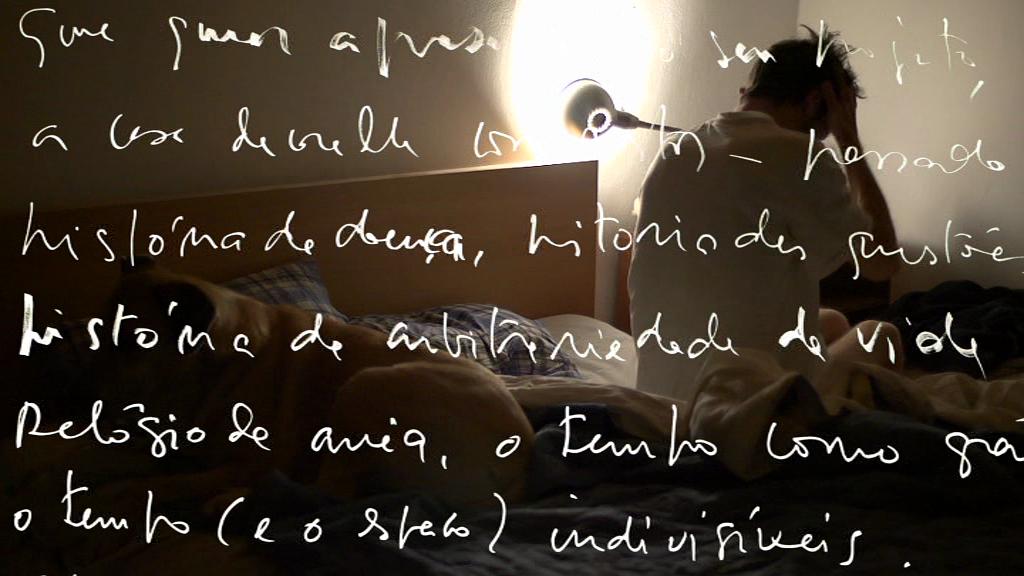 Que quer apresen seu projeto,
a casa de velho – passado
história de doença, história das questõe
história de arbitrariedade da vida
Relógio de areia, o tempo como grã
o tempo (e o espaço) indivisíveis.